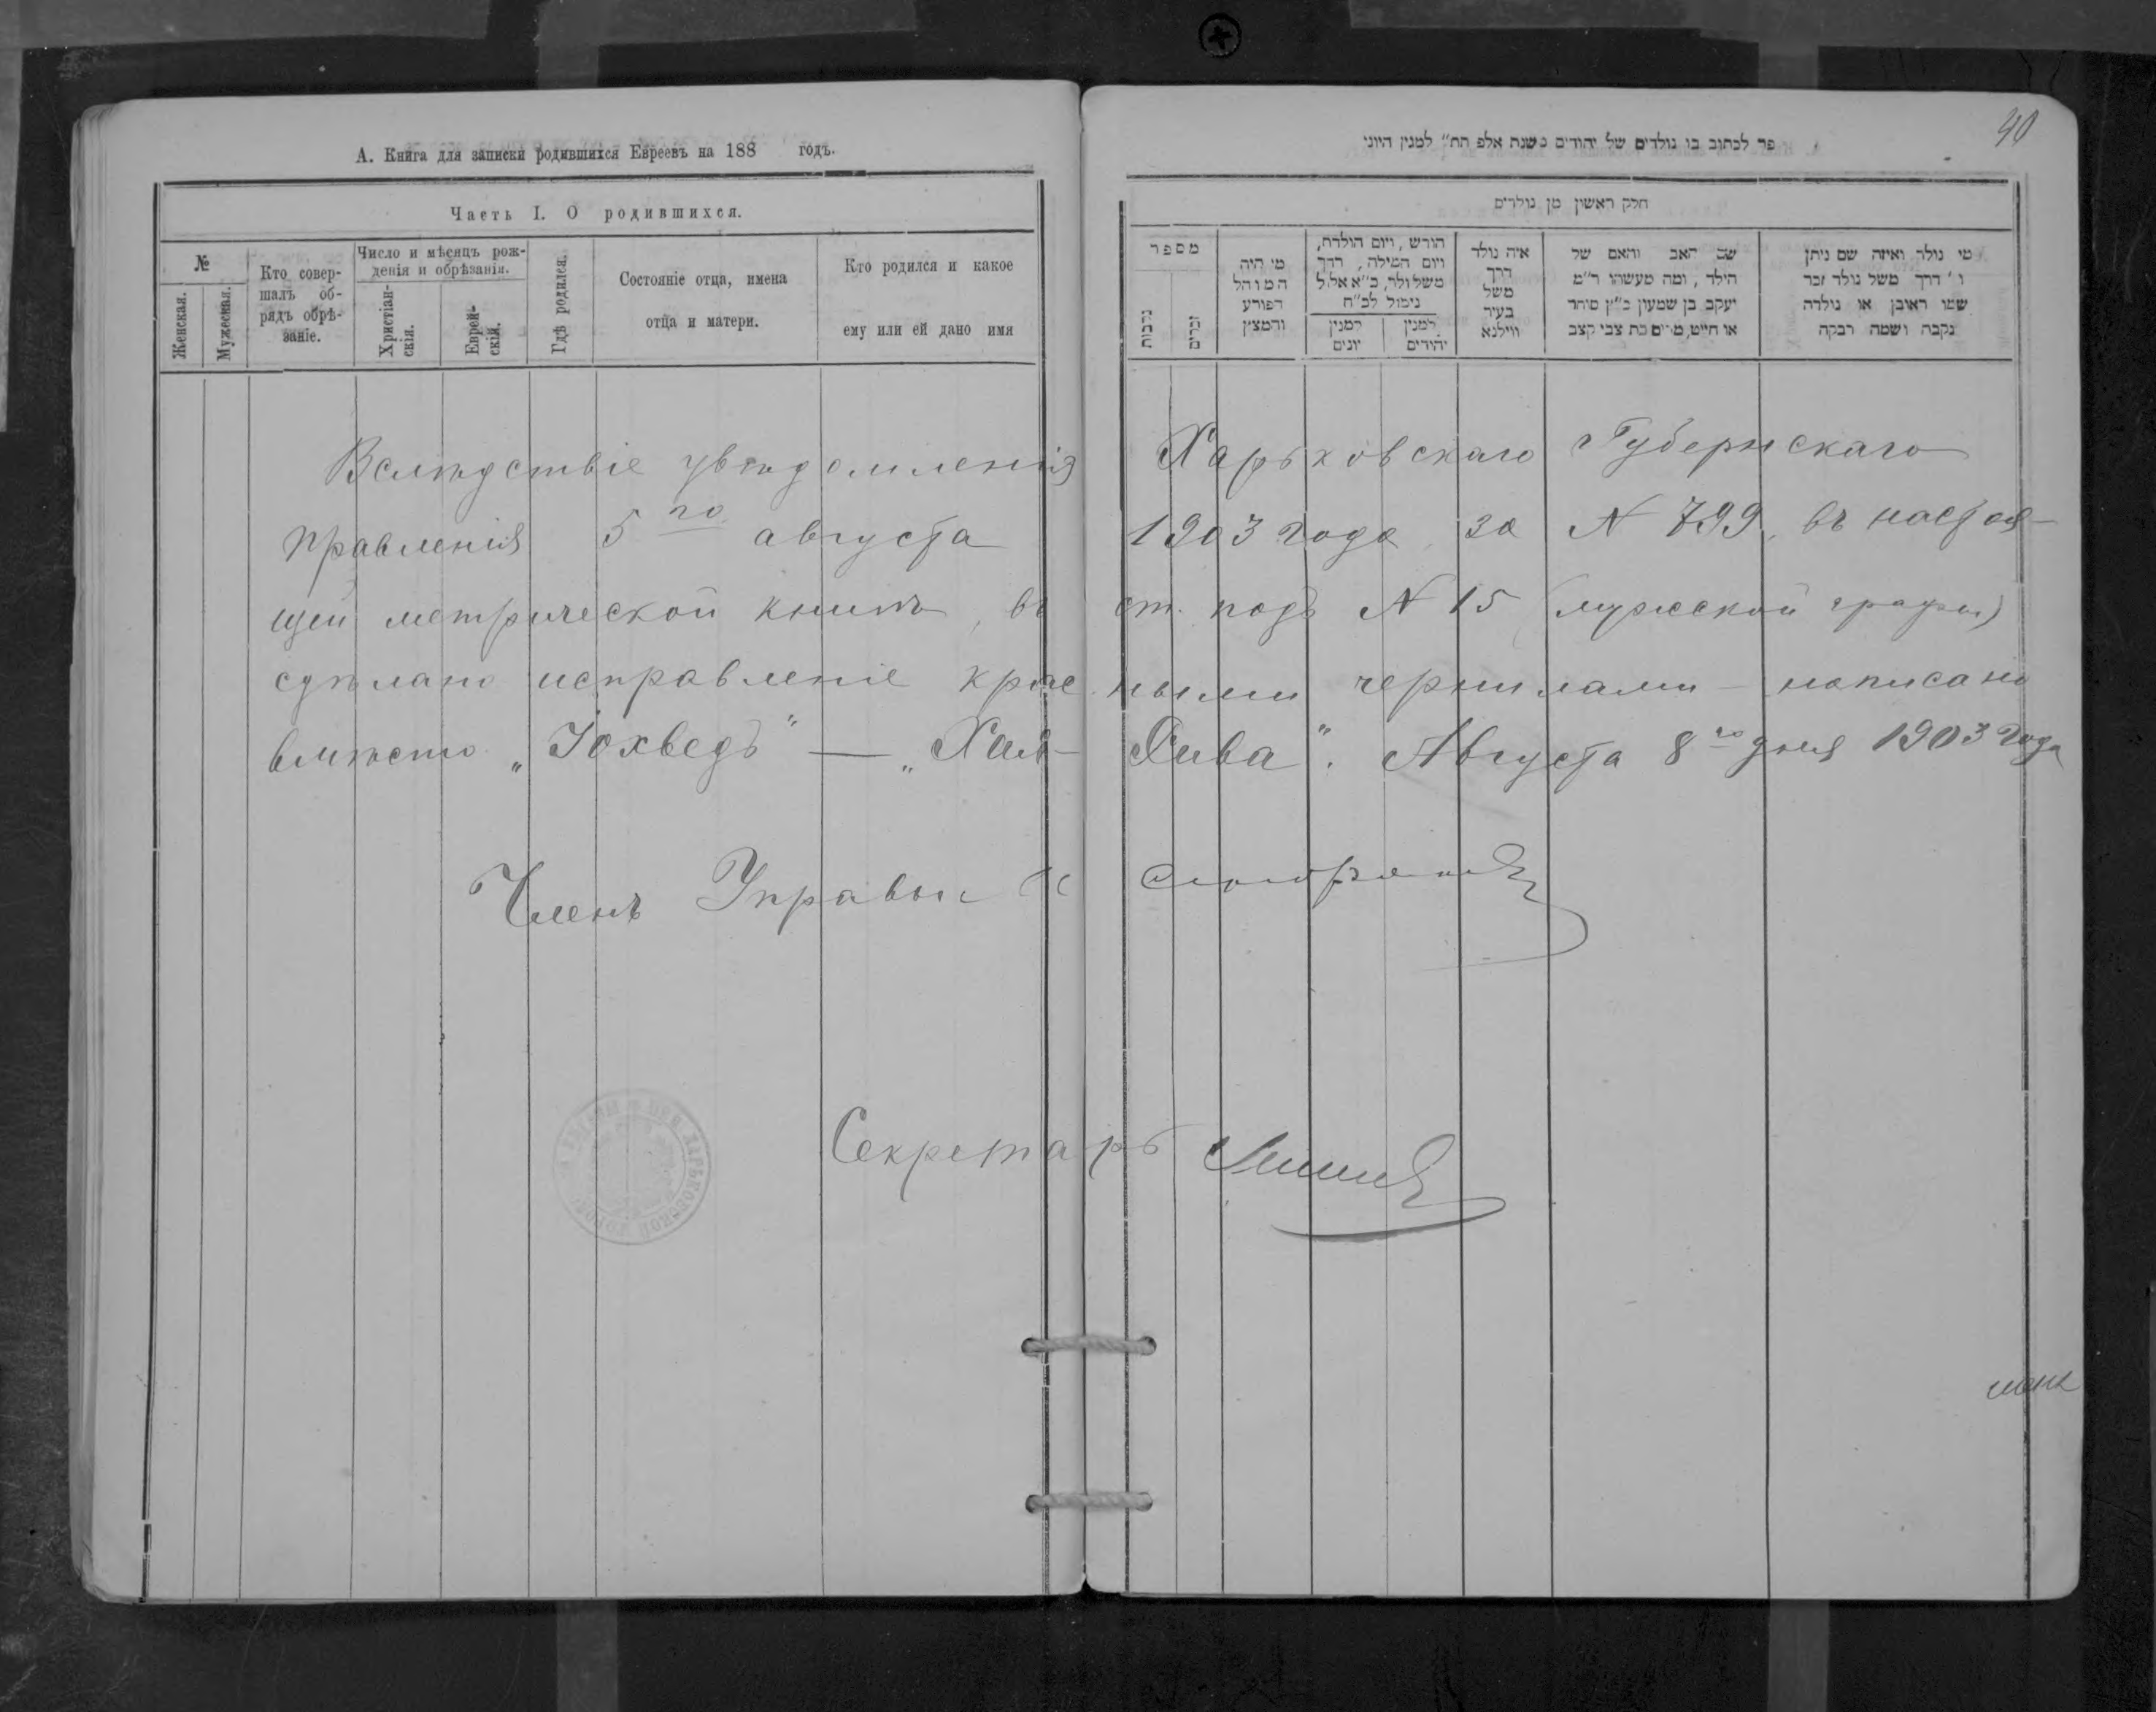 А. Книга для записки родившихся Евреевъ на 188 годъ.
Часть I. О родившихся.
№
Женская.
Мужеская.
Кто совер-
шалъ об-
рядъ обрѣ-
заніе.
Число и мѣсяцъ рож-
денія и обрѣзанія.
Христіан-
скія.
Еврей-
скія.
Гдѣ родился.
Состояніе отца, имена
отца и матери.
Кто родился и какое
ему или ей дано имя
40
פר לכתוב בו נולדים של יהודים בשנת אלפ תת״ למנין היוני
חלק ראשון מן נולדים
מספר
נקבות
זכרים
מי היה
המוהל
הפורע
והמצין
חורש, ויום הולדת,
ויום המילה, דרך
משל ולד, כ״א אלול
נימול לכ״ח
למנין
יונים
למנין
יהודים
איה נולד
דרך
משל
בעיר
ווילנא
שם האב והאם של
הילד, ומה מעשהו ד״מ
יעקב בן שמעון כ״ץ סוחר
או חייט, מרים בת צבי קצב
מי נולד ואיזה שם ניתן
ו׳ דרך משל נולד זכר
שמו ראובן או נולדה
נקבה ושמה רבקה
Вслѣдствіе увѣдомленія Харьковскаго Губернскаго
Правленія 5го августа 1903 года за № 799, въ настоя-
щей метрической книгѣ, въ ст. подъ № 15 (мужеской графы)
сдѣлано исправленіе красными чернилами – написано
вмѣсто „Іохведъ“ — „Хая-Рива“. Августа 8го дня 1903 года
Членъ Управы
Секретарь